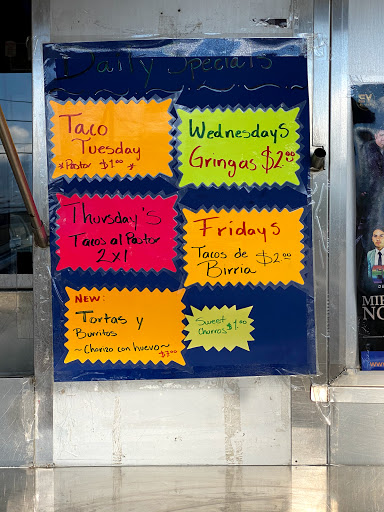 Daily Specials
Taco
Tuesday
*Pastor $1.00 *
Wednesdays
Gringas $2.00
Thursday's
Tacos al Pastor
2x1
Fridays
Tacos de $2.00
Birria
NEW:
Tortas y
Burritos
~Chorizo con huevo~
$3.00
Sweet $1.00
Churros